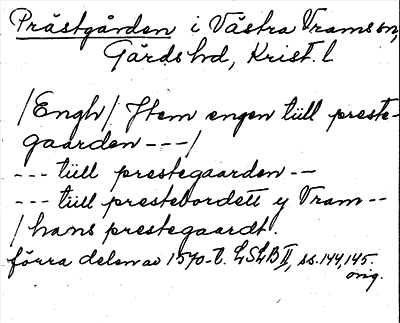 Prästgården i Västra Vrams sn,
Gärds hd, Krist. l
/Engh/ Item engen tüll preste-
gaarden ---/
--- tüll prestegaarden --
--- tüll prestebordett y Vram--
/hans prestegaardt.
förra delen av 1570-t. LSLB II, ss. 144, 145.
orig.